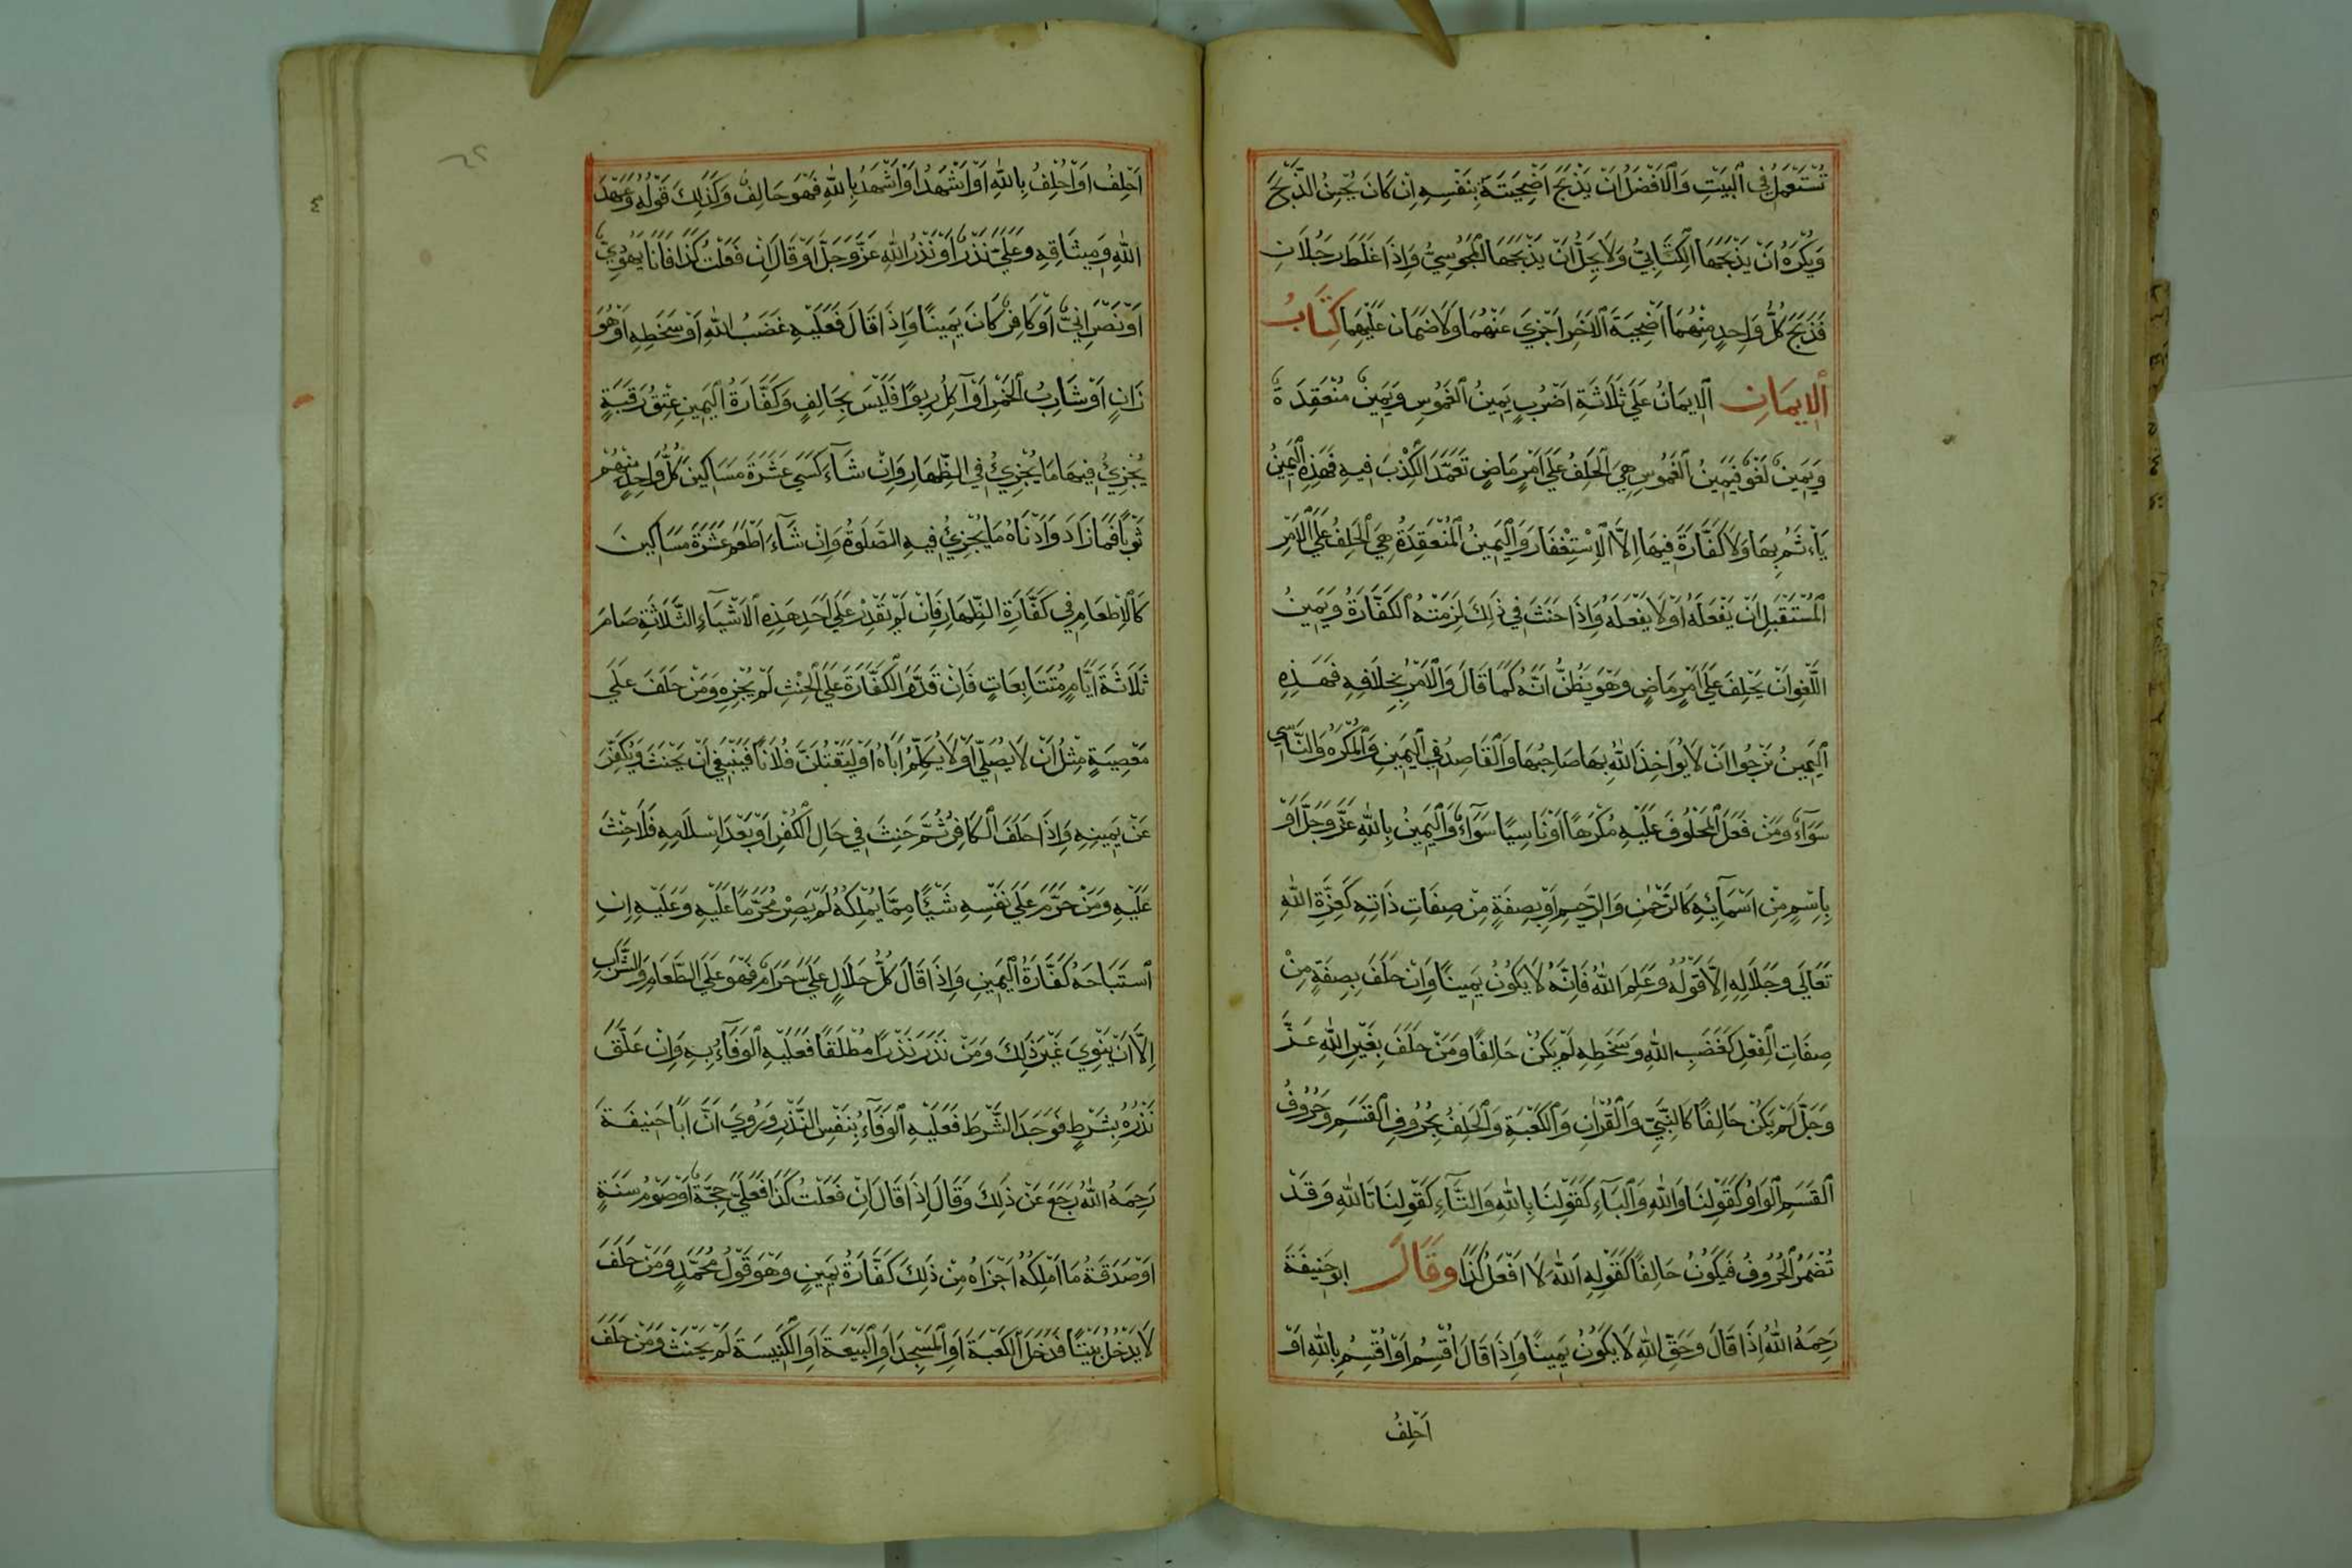 تُسْتَعْمَلُ فِي ٱلْبَيْتِ وَٱلْاَفْضَلُ اَنْ يَذْبَحَ اُضْحِيَتَهُ بِنَفْسِهِ اِنْ كَانَ يُحْسِنُ الذَّبْحَ
وَيُكْرَهُ اَنْ يَذْبَحَهَا الْكِتَابِيُّ وَلَا يَحِلُّ اَنْ يَذْبَحَهَا الْمَجُوْسِيُّ وَاِذَا غَلَطَ رَجُلَانِ
فَذَبَحَ كُلُّ وَاحِدٍ مِنْهُمَا اُضْحِيَةَ الْاٰخَرِ اَجْزَيَ عَنْهُمَا وَلَا ضَمَانَ عَلَيْهِمَا كِتَابُ
ٱلْاِيمَانِ ٱلْاِيمَانُ عَلَيَ ثَلَاثَةِ اَضْرُبٍ يَمِينُ الْغَمُوسِ وَيَمِينٌ مُنْعَقِدَةٌ
وَيَمِينٌ لَغْوٌ فَيَمِينُ الْغَمُوسِ هِيَ الْحَلِفُ عَلَيَ اَمْرٍ مَاضٍ تَعَمَّدَ الْكِذْبَ فِيهِ فَهَذِهِ الْيَمِينُ
يَاءْثَمُ بِهَا وَلَا كَفَّارَةَ فِيهَا اِلَّا الْاِسْتِغْفَارَ وَالْيَمِينُ الْمُنْعَقِدَةُ هِيَ الْحَلِفُ عَلَيَ الْاَمْرِ
الْمُسْتَقْبِلِ اَنْ يَفْعَلَهُ اَوْ لَا يَفْعَلَهُ وَاِذَا حَنَثَ فِي ذٰلِكَ لَزِمَتْهُ الْكَفَّارَةُ وَيَمِينُ
اللَّغْوِ اَنْ يَحْلِفَ عَلَيَ اَمْرٍ مَاضٍ وَهْوَ يَظُنُّ اَنَّهُ كَمَا قَالَ وَالْاَمْرُ بِخِلَافِهِ فَهَذِهِ
الْيَمِينُ نَرْجُوا اَنْ لَا يُوَاخِذَ اللّٰهُ بِهَا صَاحِبَهَا وَالْقَاصِدُ فِي الْيَمِينِ وَالْمُكْرَهُ وَالنَّاسِي
سَوَآءٌ وَمَنْ فَعَلَ الْمَحْلُوفَ عَلَيْهِ مُكْرَهًا اَوْ نَاسِيًا سَوَآءٌ وَالْيَمِينُ بِاللّٰهِ عَزَّ وَجَلَّ اَوْ
بِاِسْمٍ مِنْ اَسْمَآئِهِ كَالرَّحْمٰنِ وَالرَّحِيمِ اَوْ بِصِفَةٍ مِنْ صِفَاتِ ذَاتِهِ كَعِزَّةِ اللّٰهِ
تَعَالَي وَجَلَالِهِ اِلَّا قَوْلُهُ وَعِلْمَ اللّٰهِ فَاِنَّهُ لَا يَكُوْنُ يَمِينًا وَاِنْ حَلَفَ بِصِفَةٍ مِنْ
صِفَاتِ الْفِعْلِ كَغَضَبِ اللّٰهِ وَسَخَطِهِ لَمْ يَكُنْ حَالِفًا وَمَنْ حَلَفَ بِغَيْرِ اللّٰهِ عَزَّ
وَجَلَّ لَمْ يَكُنْ حَالِفًا كَالنَّبِيِّ وَالْقُرْاٰنِ وَالْكَعْبَةِ وَالْحَلِفُ بِحُرُوفِ الْقَسَمِ وَحُرُوفُ
الْقَسَمِ الْوَاوُ كَقَوْلِنَا وَاللّٰهِ وَالْبَآءِ كَقَوْلِنَا بِاللّٰهِ وَالتَّآءِ كَقَوْلِنَا تَاللّٰهِ وَقَدْ
تُضْمَرُ الْحُرُوفُ فَيَكُوْنُ حَالِفًا كَقَوْلِهِ اَللّٰهِ لَا اَفْعَلُ كَذَا وَقَالَ ابو حَنِيفَةَ
رَحِمَهُ اللّٰهُ اِذَا قَالَ وَحَقِّ اللّٰهِ لَا يَكُوْنُ يَمِينًا وَاِذَا قَالَ اُقْسِمُ اَوْ اُقْسِمُ بِاللّٰهِ اَوْ
اَحْلِفُ
٦٢
اَحْلِفُ اَوْ اَحْلِفُ بِاللّٰهِ اَوْ اَشْهَدُ اَوْ اَشْهَدُ بِاللّٰهِ فَهْوَ حَالِفٌ وَكَذٰلِكَ قَوْلُهُ وَعَهْدَ
اللّٰهِ وَمِيثَاقِهِ وَعَلَيَّ نَذْرٌ اَوْ نَذْرُ اللّٰهِ عَزَّ وَجَلَّ اَوْ قَالَ اِنْ فَعَلْتُ كَذَا فَاَنَا يَهُوْدِيٌّ
اَوْ نَصْرَانِيٌّ اَوْ كَافِرٌ كَانَ يَمِينًا وَاِذَا قَالَ فَعَلَيْهِ غَضَبُ اللّٰهِ اَوْ سَخَطِهِ اَوْ هُوَ
زَانٍ اَوْ شَارِبُ الْخَمْرِ اَوْ آكِلُ رِبوًا فَلَيْسَ بِحَالِفٍ وَكَفَّارَةُ الْيَمِينِ عِتْقُ رَقَبَةٍ
يُجْزِيُ فِيهَا مَا يُجْزِيُ فِي الظِّهَارِ وَاِنْ شَآءَ كَسَي عَشَرَةَ مَسَاكِينَ كُلُّ وَاحِدٍ مِنْهُمْ
ثَوْبًا فَمَا زَادَ وَاَدْنَاهُ مَا يُجْزِيُ فِيهِ الصَّلٰوةُ وَاِنْ شَآءَ اَطْعَمَ عَشَرَةَ مَسَاكِينَ
كَالْاِطْعَامِ فِي كَفَّارَةِ الظِّهَارِ فَاِنْ لَمْ يَقْدِرْ عَلَي اَحَدِ هَذِهِ الْاَشْيَآءِ الثَّلَاثَةِ صَامَ
ثَلَاثَةَ اَيَّامٍ مُتَتَابِعَاتٍ فَاِنْ قَدَّمَ الْكَفَّارَةَ عَلَي الْحِنْثِ لَمْ يُجْزِهِ وَمَنْ حَلَفَ عَلَي
مَعْصِيَةٍ مِثْلُ اَنْ لَا يُصَلِّي اَوْ لَا يُكَلِّمُ اَبَاهُ اَوْ لَيَقْتُلَنَّ فُلَانًا فَيَنْبَغِي اَنْ يَحْنَثَ وَيُكَفِّرَ
عَنْ يَمِينِهِ وَاِذَا حَلَفَ الْكَافِرُ ثُمَّ حَنِثَ فِي حَالِ الْكُفْرِ اَوْ بَعْدَ اِسْلَامِهِ فَلَا حِنْثَ
عَلَيْهِ وَمَنْ حَرَّمَ عَلَي نَفْسِهِ شَيْئًا مِمَّا يَمْلِكُهُ لَمْ يَصِرْ مُحَرَّمًا عَلَيْهِ وَعَلَيْهِ اِنِ
اسْتَبَاحَهُ كَفَّارَةُ الْيَمِينِ وَاِذَا قَالَ كُلُّ حَلَالٍ عَلَيَّ حَرَامٌ فَهْوَ عَلَي الطَّعَامِ وَالشَّرَابِ
اِلَّا اَنْ يَنْوِيَ غَيْرَ ذٰلِكَ وَمَنْ نَذَرَ نَذْرًا مُطْلَقًا فَعَلَيْهِ الْوَفَآءُ بِهِ وَاِنْ عَلَّقَ
نَذْرُهُ بِشَرْطٍ فَوَجَدَ الشَّرْطَ فَعَلَيْهِ الْوَفَآءُ بِنَفْسِ النَّذْرِ وَرُوِيَ اَنَّ اَبَا حَنِيفَةَ
رَحِمَهُ اللّٰهُ رَجَعَ عَنْ ذٰلِكَ وَقَالَ اِذَا قَالَ اِنْ فَعَلْتُ كَذَا فَعَلَيَّ حَجَّةٌ اَوْ صَوْمُ سَنَةٍ
اَوْ صَدَقَةُ مَا اَمْلِكُهُ اَجْزَاهُ مِنْ ذٰلِكَ كَفَّارَةُ يَمِينٍ وَهْوَ قَوْلُ مُحَمَّدٍ وَمَنْ حَلَفَ
لَا يَدْخُلُ بَيْتًا فَدَخَلَ الْكَعْبَةَ اَوِ الْمَسْجِدَ اَوِ الْبَيْعَةَ اَوِ الْكَنِيسَةَ لَمْ يَحْنَثْ وَمَنْ حَلَفَ